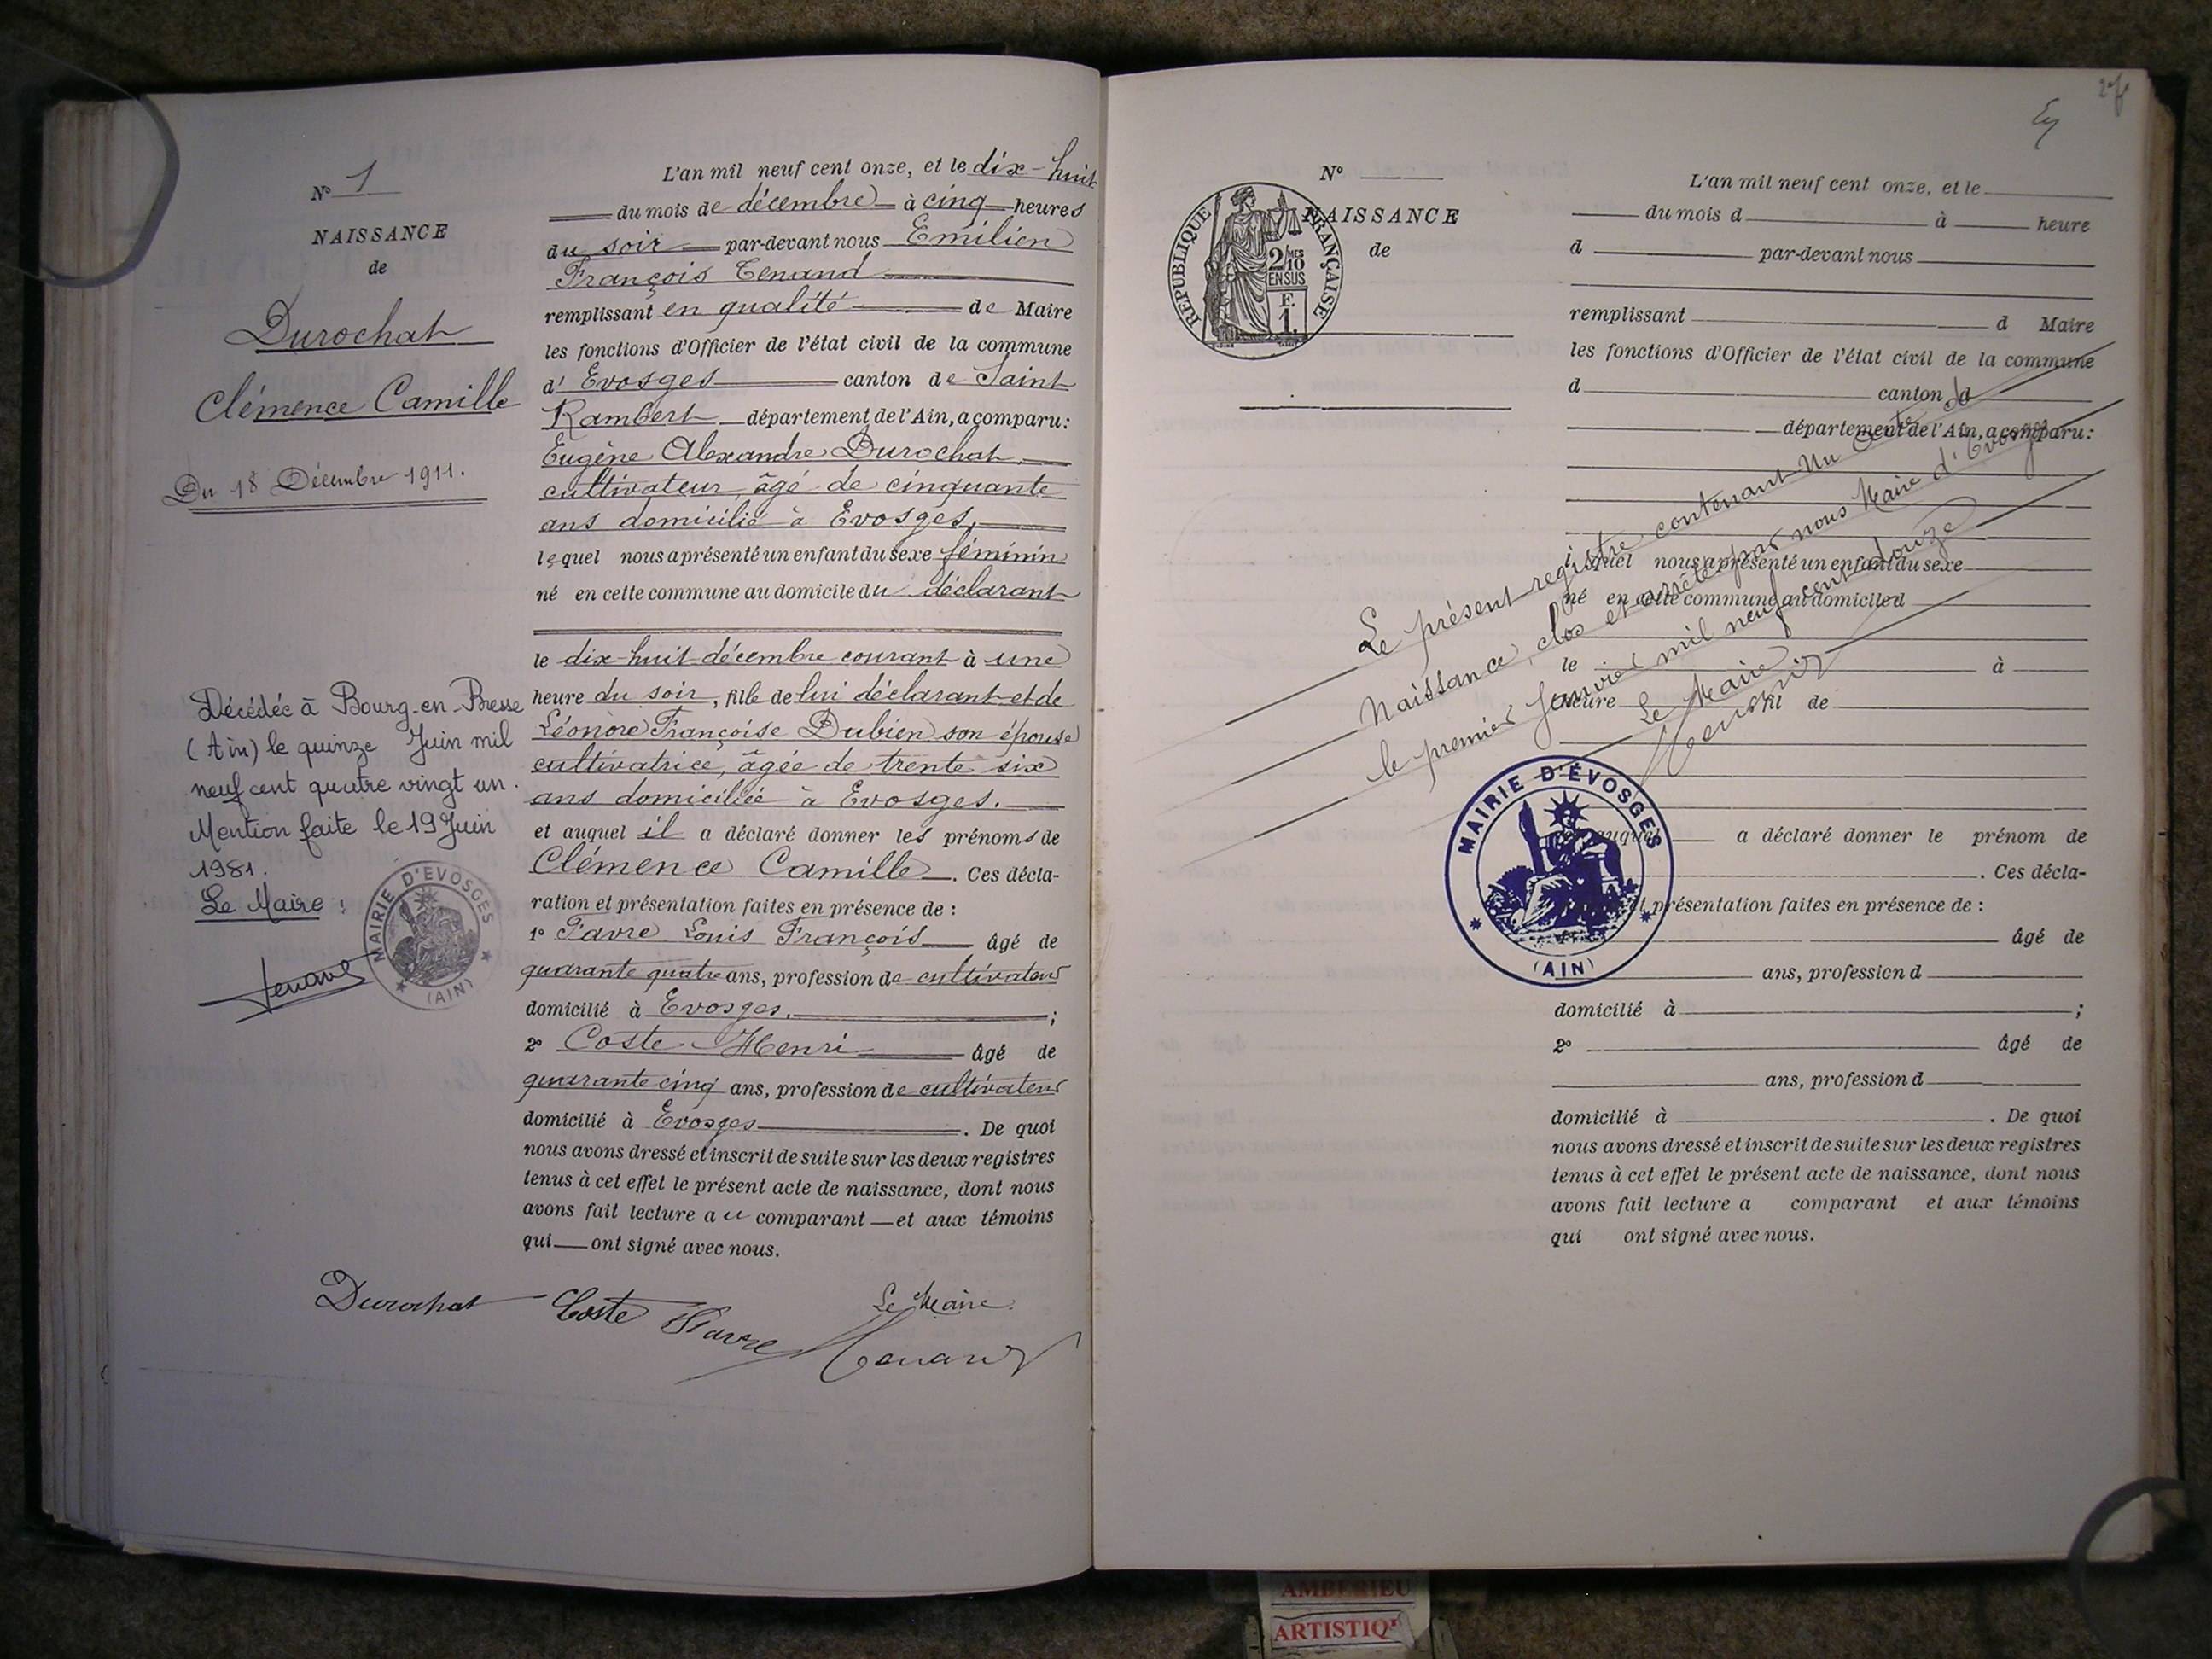 N° 1
NAISSANCE
de
Durochat
Clémence Camille
Du 18 Décembre 1911.
Décédée à Bourg-en-Bresse
(Ain) le quinze Juin mil
neuf cent quatre vingt un.
Mention faite le 19 Juin
1981.
Le Maire :
MAIRIE D'EVOSGES
(AIN)
L'an mil neuf cent onze, et le dix-huit
du mois de décembre à cinq heures
du soir par-devant nous Emilien
François Tenand
remplissant en qualité de Maire
les fonctions d'Officier de l'état civil de la commune
d' Evosges canton de Saint
Rambert département de l'Ain, a comparu:
Eugène Alexandre Durochat
cultivateur, âgé de cinquante
ans domicilié à Evosges,
lequel nous a présenté un enfant du sexe féminin
né en cette commune au domicile du déclarant
le dix-huit décembre courant à une
heure du soir, fille de lui déclarant et de
Léonore Françoise Dubien son épouse
cultivatrice, âgée de trente six
ans domiciliée à Evosges.
et auquel il a déclaré donner les prénoms de
Clémence Camille. Ces décla-
ration et présentation faites en présence de :
1° Favre Louis François âgé de
quarante quatre ans, profession de cultivateur
domicilié à Evosges. ;
2° Coste Henri âgé de
quarante cinq ans, profession de cultivateur
domicilié à Evosges . De quoi
nous avons dressé et inscrit de suite sur les deux registres
tenus à cet effet le présent acte de naissance, dont nous
avons fait lecture au comparant et aux témoins
qui ont signé avec nous.
Durochat Coste Favre
Le Maire
Tenand
N°
NAISSANCE
de
REPUBLIQUE FRANÇAISE
2/10 MES
EN SUS
F.
1.
L'an mil neuf cent onze, et le
du mois d à heure
d par-devant nous
remplissant d Maire
les fonctions d'Officier de l'état civil de la commune
d canton d
département de l'Ain, a comparu:
lequel nous a présenté un enfant du sexe
né en cette commune au domicile d
le à
heure fil de
et auquel a déclaré donner le prénom de
. Ces décla-
et présentation faites en présence de :
âgé de
ans, profession d
domicilié à ;
2° âgé de
ans, profession d
domicilié à . De quoi
nous avons dressé et inscrit de suite sur les deux registres
tenus à cet effet le présent acte de naissance, dont nous
avons fait lecture a comparant et aux témoins
qui ont signé avec nous.
Le présent registre contenant Un acte de
Naissance, clos et arrêté par nous Maire d'Evosges
le premier Janvier mil neuf cent douze
Le Maire
Tenand
MAIRIE D'ÉVOSGES
(AIN)
AMBERIEU
ARTISTIQ